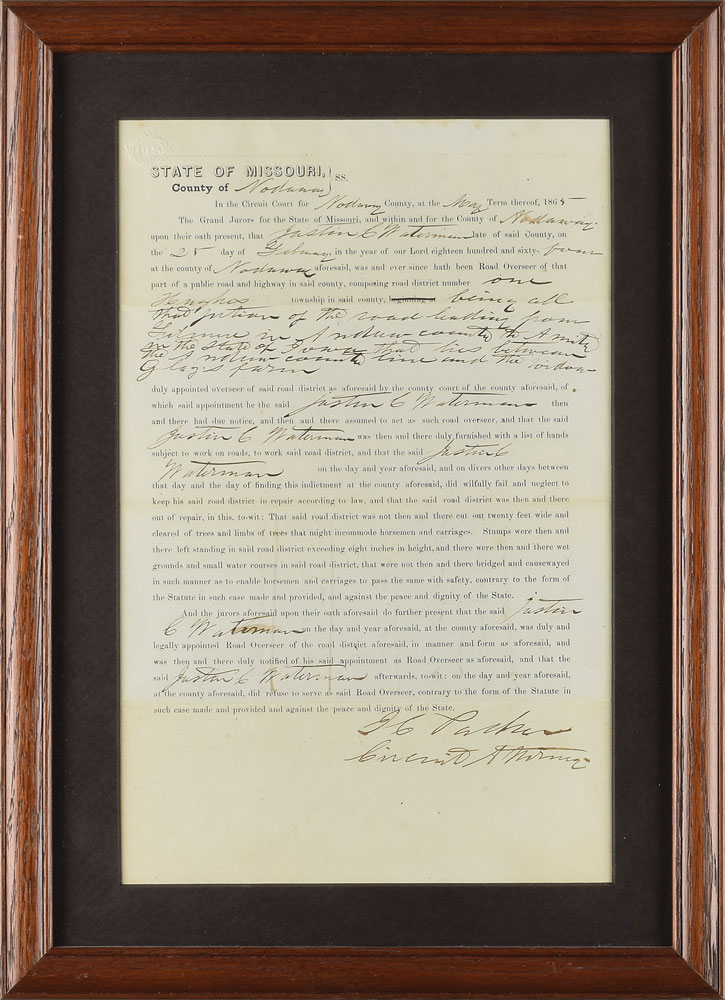 STATE OF MISSOURI, } SS.
County of Nodaway
In the Circuit Court for Nodaway County, at the May Term thereof, 1865
The Grand Jurors for the State of Missouri, and within and for the County of Nodaway
upon their oath present, that Justin C Waterman late of said County, on
the 25 day of in the year of our Lord eighteen hundred and sixty-four
at the county of Nodaway aforesaid, was and ever since hath been Road Overseer of that
part of a public road and highway in said county, composing road district number one
Hughes township in said county, beginning at being all
that portion of the road leading from
Filmore in Andrew county to Amity
in the State of Iowa that lies between
the Andrew county line and the widow
farm
duly appointed overseer of said road district as aforesaid by the county court of the county aforesaid, of
which said appointment he the said Justin C Waterman then
and there had due notice, and then and there assumed to act as such road overseer, and that the said
Justin C Waterman was then and there duly furnished with a list of hands
subject to work on roads, to work said road district, and that the said Justin C
Waterman on the day and year aforesaid, and on divers other days between
that day and the day of finding this indictment at the county aforesaid, did wilfully fail and neglect to
keep his said road district in repair according to law, and that the said road district was then and there
out of repair, in this, to-wit: That said road district was not then and there cut out twenty feet wide and
cleared of trees and limbs of trees that might incommode horsemen and carriages. Stumps were then and
there left standing in said road district exceeding eight inches in height, and there were then and there wet
grounds and small water courses in said road district, that were not then and there bridged and causewayed
in such manner as to enable horsemen and carriages to pass the same with safety, contrary to the form of
the Statute in such case made and provided, and against the peace and dignity of the State.
And the jurors aforesaid upon their oath aforesaid do further present that the said Justin
C Waterman on the day and year aforesaid, at the county aforesaid, was duly and
legally appointed Road Overseer of the road district aforesaid, in manner and form as aforesaid, and
was then and there duly notified of his said appointment as Road Overseer as aforesaid, and that the
said Justin C Waterman afterwards, to-wit: on the day and year aforesaid,
at the county aforesaid, did refuse to serve as said Road Overseer, contrary to the form of the Statute in
such case made and provided and against the peace and dignity of the State.
I C Parker
Circuit Attorney